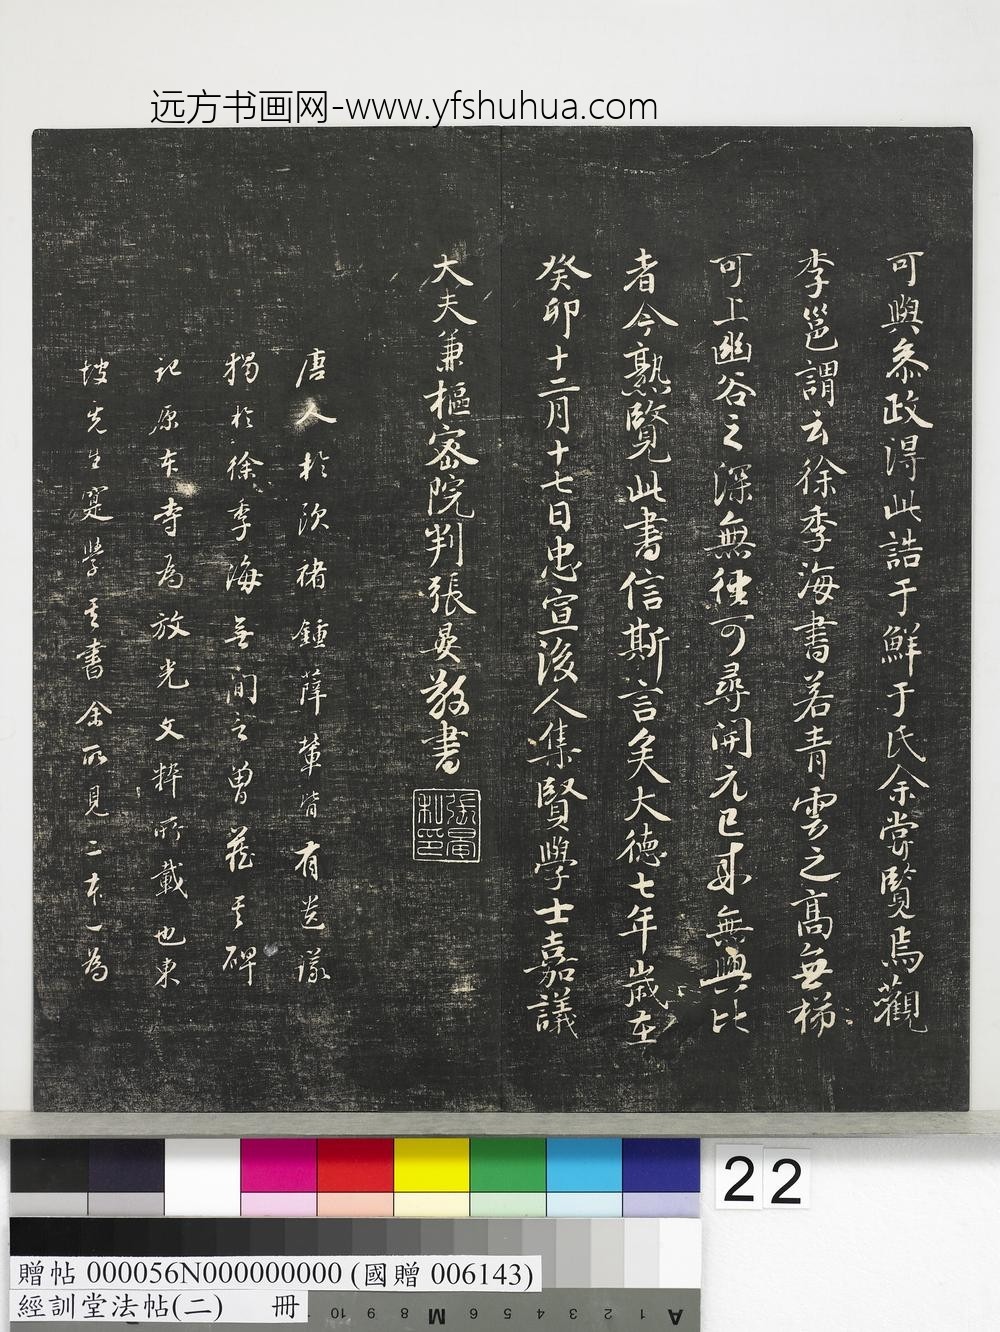 远方书画网-www.yfshuhua.com
可與叅政得此誥于鮮于氏余嘗賢焉觀
李邕謂云徐季海書若青雲之高無梯
可上幽谷之深無徑可尋開元已來無與比
者今熟覽此書信斯言矣大德七年歲在
癸卯十二月十七日忠宣後人集賢學士嘉議
大夫兼樞密院判張晏敬書
張晏私印
唐人於歐褚鍾薛輩皆有異議
獨於徐季海無間言曾藏其碑
記原本寺為放光文粹所載也東
坡先生寔學其書余所見二本一為
22
贈帖 000056N000000000 (國贈 006143)
經訓堂法帖(二) 冊
10 9 8 M 6 5 4 3 2 1 A